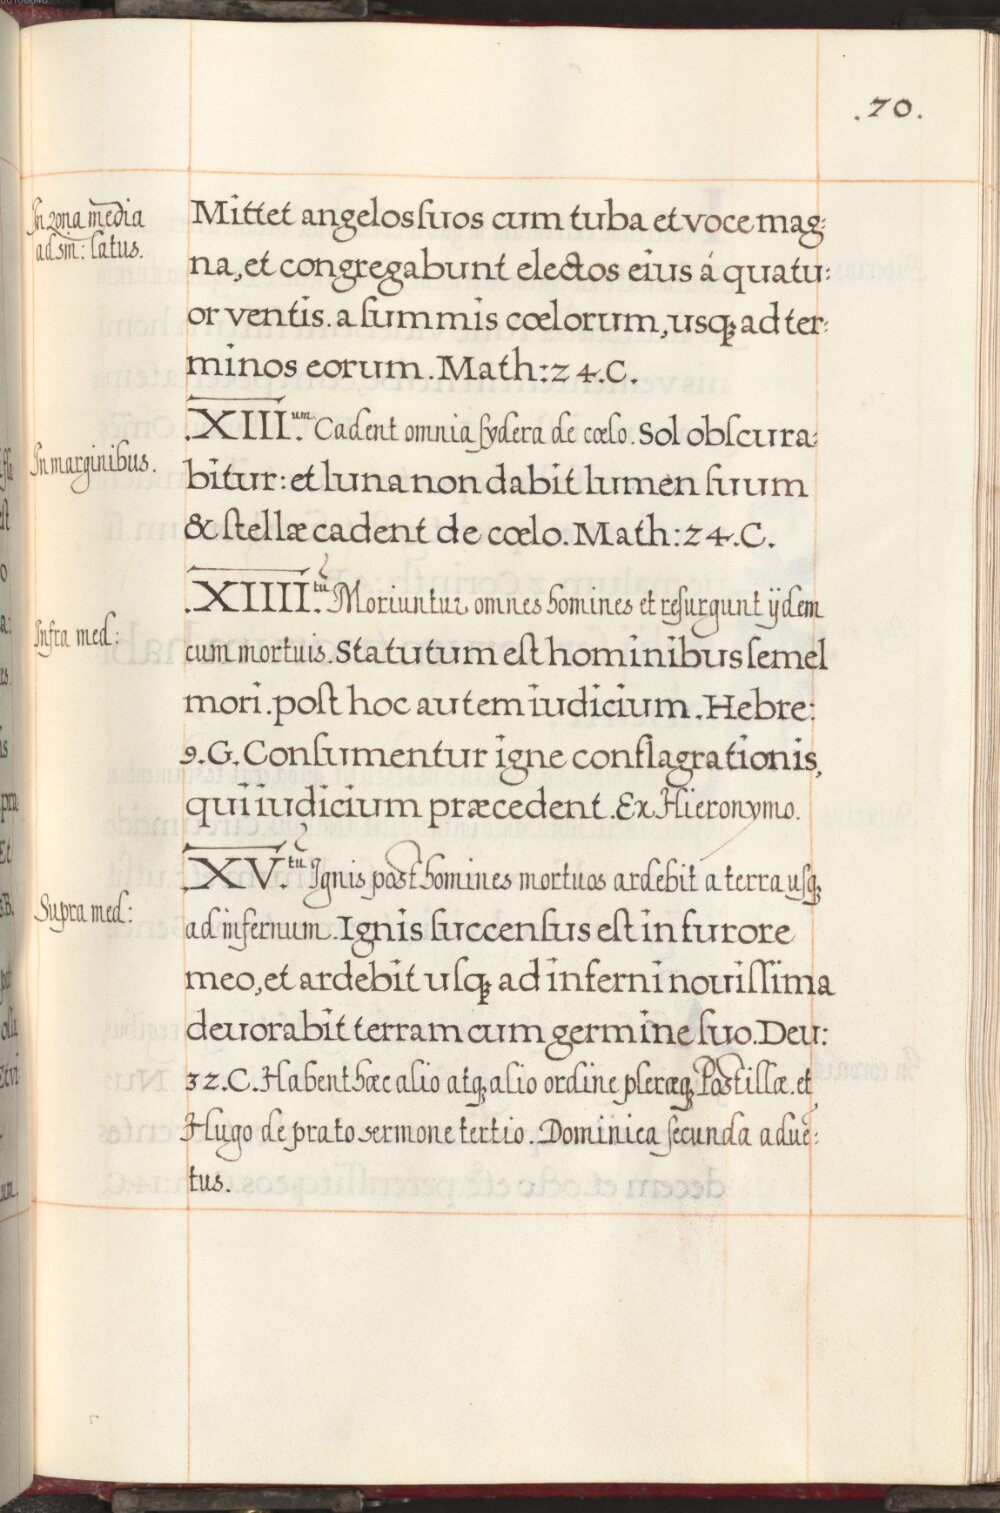 .70.
In zona media
ad sin: latus.
Mittet angelos suos cum tuba et voce mag:
na, et congregabunt electos eius á quatu:
or ventis. a summis cœlorum, usq; ad ter:
minos eorum. Math: 24. C.
.XIII.um Cadent omnia sydera de cœlo. Sol obscura:
In marginibus.
bitur: et luna non dabit lumen suum
& stellæ cadent de cœlo. Math: 24. C.
.XIIII.tū Moriuntur omnes homines et resurgunt ijdem
Infra med:
cum mortuis. Statutum est hominibus semel
mori. post hoc autem iudicium. Hebre:
9. G. Consumentur igne conflagrationis,
qui iudicium præcedent. Ex Hieronymo.
.XV.tū Ignis post homines mortuos ardebit a terra usq;
Supra med:
ad infernum. Ignis succensus est in furore
meo, et ardebit usq; ad inferni novissima
devorabit terram cum germine suo. Deu:
32. C. Habent hæc alio atq; alio ordine pleræq; Postillæ. et
Hugo de prato sermone tertio. Dominica secunda adue:
tus.